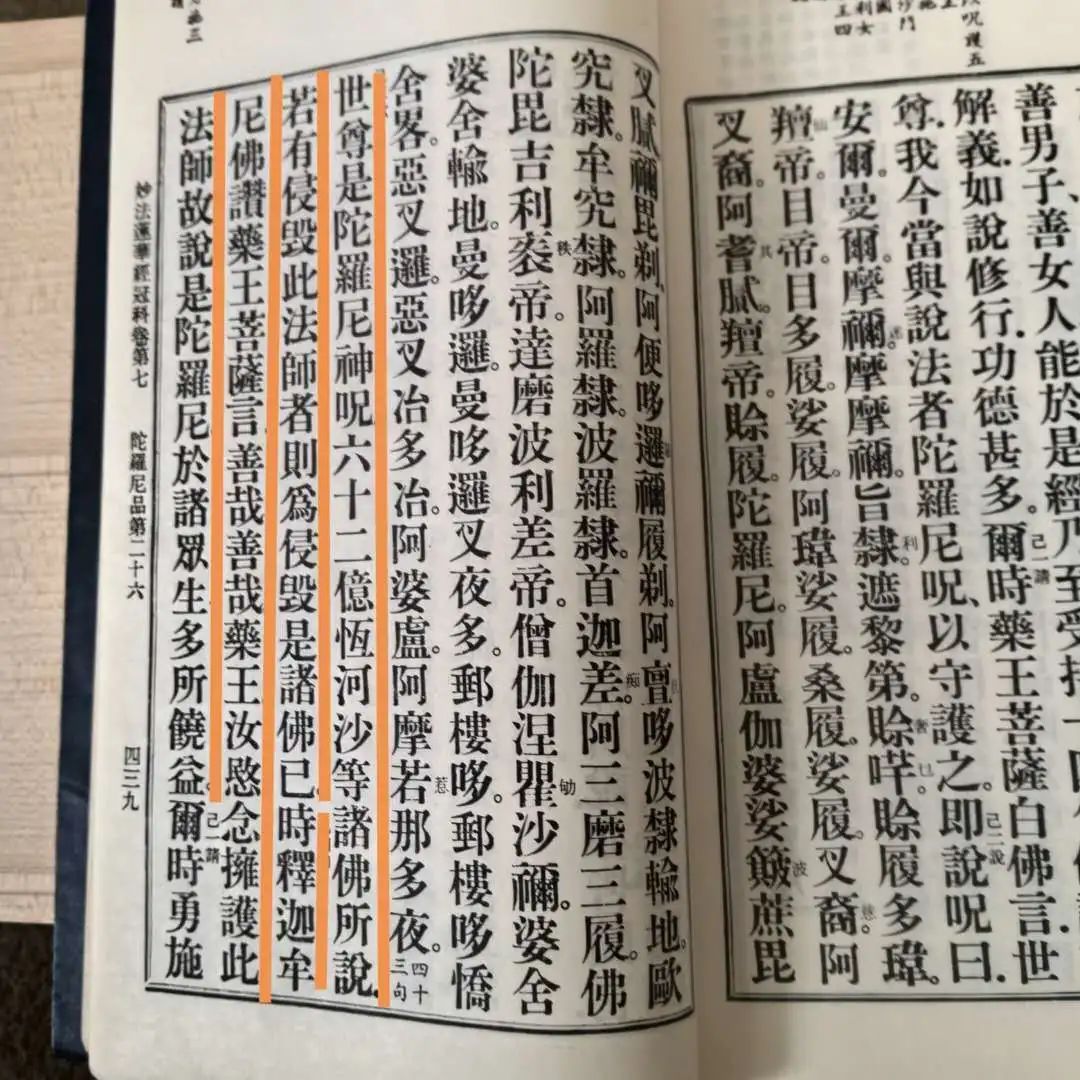 善男子、善女人能於是經乃至受持
解義.如說修行.功德甚多。己請爾時藥王菩薩白佛言.世
尊.我今當與說法者陀羅尼呪、以守護之。己二說即說呪曰.
安爾。曼爾。摩禰。摩摩禰。旨隸。利遮黎第。賒奢咩。巳賒履多瑋。
羶仙帝。目帝。其目多履。娑履。阿瑋娑履。桑履。娑履。叉裔。慈阿
叉裔。阿耆膩。羶帝。賒履。陀羅尼。阿盧伽婆娑簸波蔗毘
叉膩。禰毘剃。阿便哆邏禰履剃。阿亶哆波隸輸地。歐
究隸。牟究隸。阿羅隸。波羅隸。首迦差。痴阿三磨三履。佛
陀毘吉利袠秩帝。達磨波利差帝。僧伽涅瞿劬沙禰。婆舍
婆舍輸地。曼哆邏。曼哆邏叉夜多。郵樓哆。郵樓哆憍
舍畧。惡叉邏。惡叉冶多冶。阿婆盧。阿摩若惹那多夜。四十三句
世尊是陀羅尼神呪六十二億恆河沙等諸佛所說.
若有侵毀此法師者則爲侵毀是諸佛已.時釋迦牟
尼佛讚藥王菩薩言善哉善哉藥王汝愍念擁護此
法師故說是陀羅尼於諸眾生多所饒益。己請爾時勇施
妙法蓮華經冠科卷第七　陀羅尼品第二十六　四三九